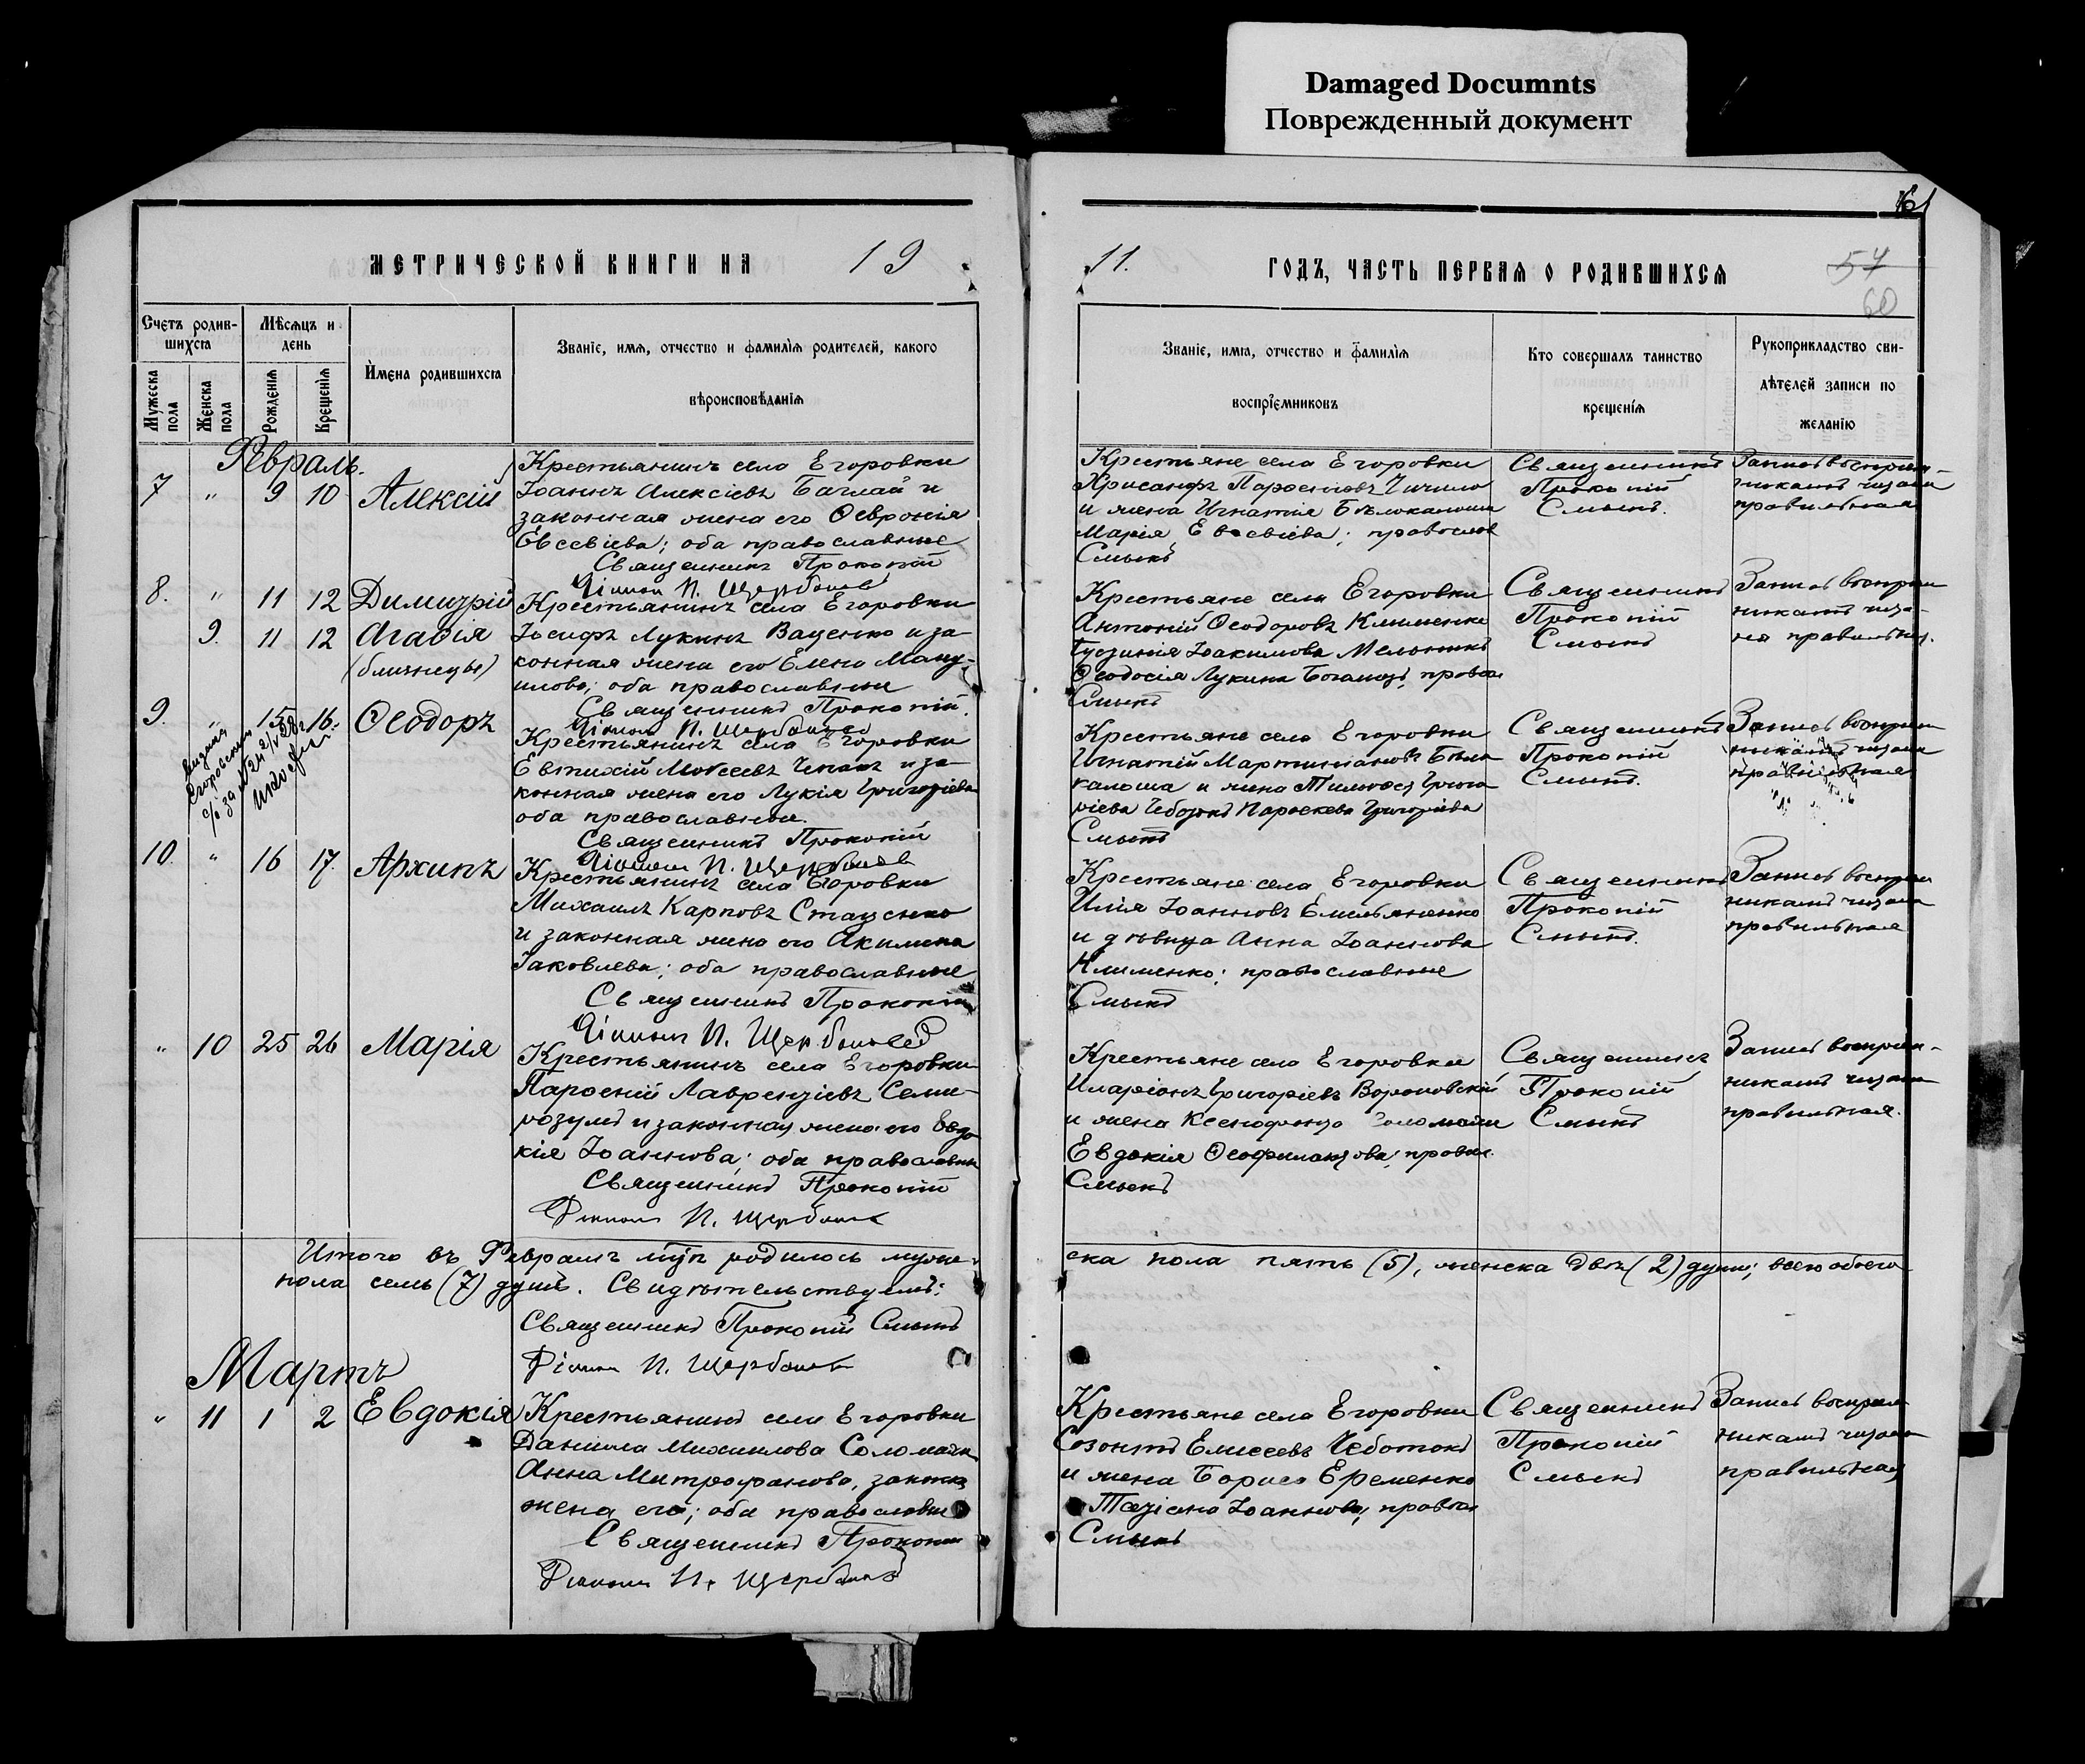 Damaged Documnts
Поврежденный документ
61
МЕТРИЧЕСКОЙ КНИГИ НА 19
11. ГОДЪ, ЧАСТЬ ПЕРВАЯ О РОДИВШИХСЯ
57
60
Счетъ родив-
шихся
Мужеска пола
Женска пола
Мѣсяцъ и
день
Рожденія
Крещенія
Имена родившихся
Званіе, имя, отчество и фамилія родителей, какого
вѣроисповѣданія
Званіе, имя, отчество и фамилія
воспріемниковъ
Кто совершалъ таинство
крещенія
Рукоприкладство сви-
дѣтелей записи по
желанію
Февраль.
7 " 9 10 Алексій
Крестьянинъ села Егоровки
Іоаннъ Алексіевъ Баглай и
законная жена его Ѳевронія
Евсевіева; оба православные
Священникъ Прокопій
Діаконъ П. Щербановъ
Крестьяне села Егоровки
Хрисанфъ Парѳеніевъ Чичило
и жена Игнатія Бѣлокалоша
Марія Евсевіева; православ
Смыкъ
Священникъ
Прокопій
Смыкъ.
Запись воспріем-
никамъ читана
правильная
8. " 11 12 Димитрій
9. 11 12 Агаѳія
(близнецы)
Крестьянинъ села Егоровки
Іосифъ Лукинъ Ваценко и за-
конная жена его Елена Ману-
илова; оба православные
Священникъ Прокопій
Діаконъ П. Щербановъ
Крестьяне села Егоровки
Антоній Ѳеодоровъ Клименко
Іустинія Іоакимова Мельникъ
Ѳеодосія Лукина православ
Смыкъ
Священникъ
Прокопій
Смыкъ
Запись воспріем
никамъ чита-
на правильная.
9. " 15 16. Ѳеодоръ
Выдана
Егоровским
с/с № 24
Крестьянинъ села Егоровки
Евтихій Моѵсеевъ Чепакъ и за-
конная жена его Лукія Григоріева
оба православные.
Священникъ Прокопій
Діаконъ П. Щербановъ
Крестьяне села Егоровки
Игнатій Мартиніановъ Бѣло
калоша и жена Тимоѳея Григо
ріева Чеботокъ Параскева Григоріева
Смыкъ
Священникъ
Прокопій
Смыкъ.
Запись воспріем
никамъ читана
правильная
10. " 16 17. Архипъ
Крестьянинъ села Егоровки
Михаилъ Карповъ Стаценко
и законная жена его Акилина
Іаковлева; оба православные
Священникъ Прокопій
Діаконъ П. Щербановъ
Крестьяне села Егоровки
Илія Іоанновъ Емельяненко
и дѣвица Анна Іоаннова
Клименко; православные
Смыкъ
Священникъ
Прокопій
Смыкъ.
Запись воспріем
никамъ читана
правильная
" 10 25 26 Марія
Крестьянинъ села Егоровки
Парѳеній Лаврентіевъ Семи-
розумъ и законная жена его Евдо
кія Іоаннова; оба православные
Священникъ Прокопій
Діаконъ П. Щербановъ
Крестьяне села Егоровки
Иларіонъ Григоріевъ Вороновскій
и жена Ксенофонта Соломахи
Евдокія Ѳеофилактова; правос.
Смыкъ
Священникъ
Прокопій
Смыкъ
Запись воспріем-
никамъ читана
правильная.
Итого въ Февралѣ мцѣ родилось муже-
ска пола пять (5), женска двѣ (2) души; всего обоего
пола семь (7) душъ. Свидѣтельствуемъ:
Священникъ Прокопій Смыкъ
Діаконъ П. Щербановъ
Мартъ
" 11 1 2 Евдокія
Крестьянинъ села Егоровки
Даніила Михаилова Соломахи
Анна Митрофанова, законная
жена его; оба православные
Священникъ Прокопій
Діаконъ П. Щербановъ
Крестьяне села Егоровки
Созонтъ Елисеевъ Чеботокъ
и жена Бориса Еременко
Татіана Іоаннова; правос
Смыкъ
Священникъ
Прокопій
Смыкъ
Запись воспріем
никамъ читана
правильная